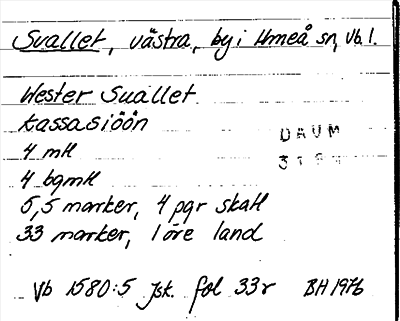 Svallet, västra, by i Umeå sn, Vb.l.
Wester Suallet
kassasiöön
DAUM
4 mtl
4 bgmtl
5,5 marker, 4 pgr skatt
33 marker, 1 öre land
Vb 1580:5 Jsk. fol 33r BH 1976